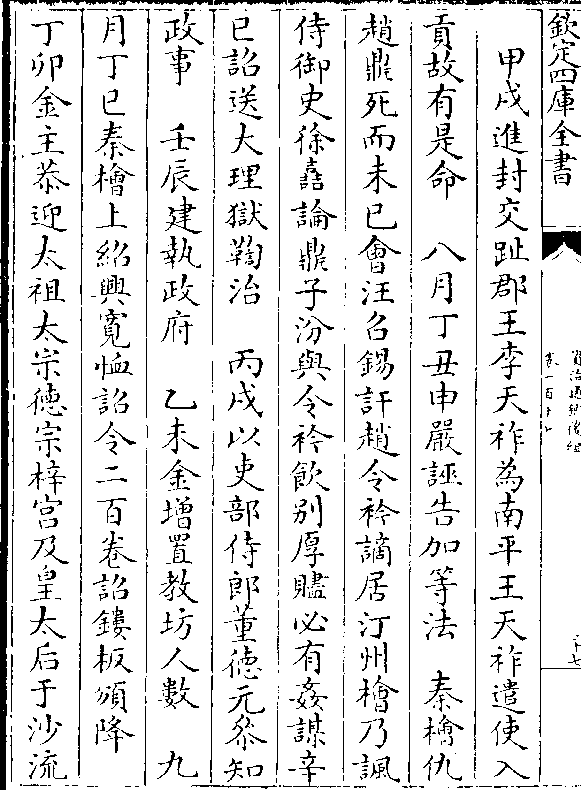 欽定四庫全書
甲戌進封交趾郡王李天祚為南平王天祚遣使入
貢故有是命　八月丁丑申嚴誣告加等法　秦檜仇
趙鼎死而未已會汪召錫訐趙令衿謫居汀州檜乃諷
侍御史徐嚞論鼎子汾與令衿飲别厚贐必有姦謀辛
巳詔送大理獄鞫治　丙戌以吏部侍郎董徳元叅知
政事　壬辰建執政府　乙未金增置教坊人數　九
月丁巳秦檜上紹興寛恤詔令二百卷詔鏤板頒降
丁卯金主恭迎太祖太宗徳宗梓宫及皇太后于沙流